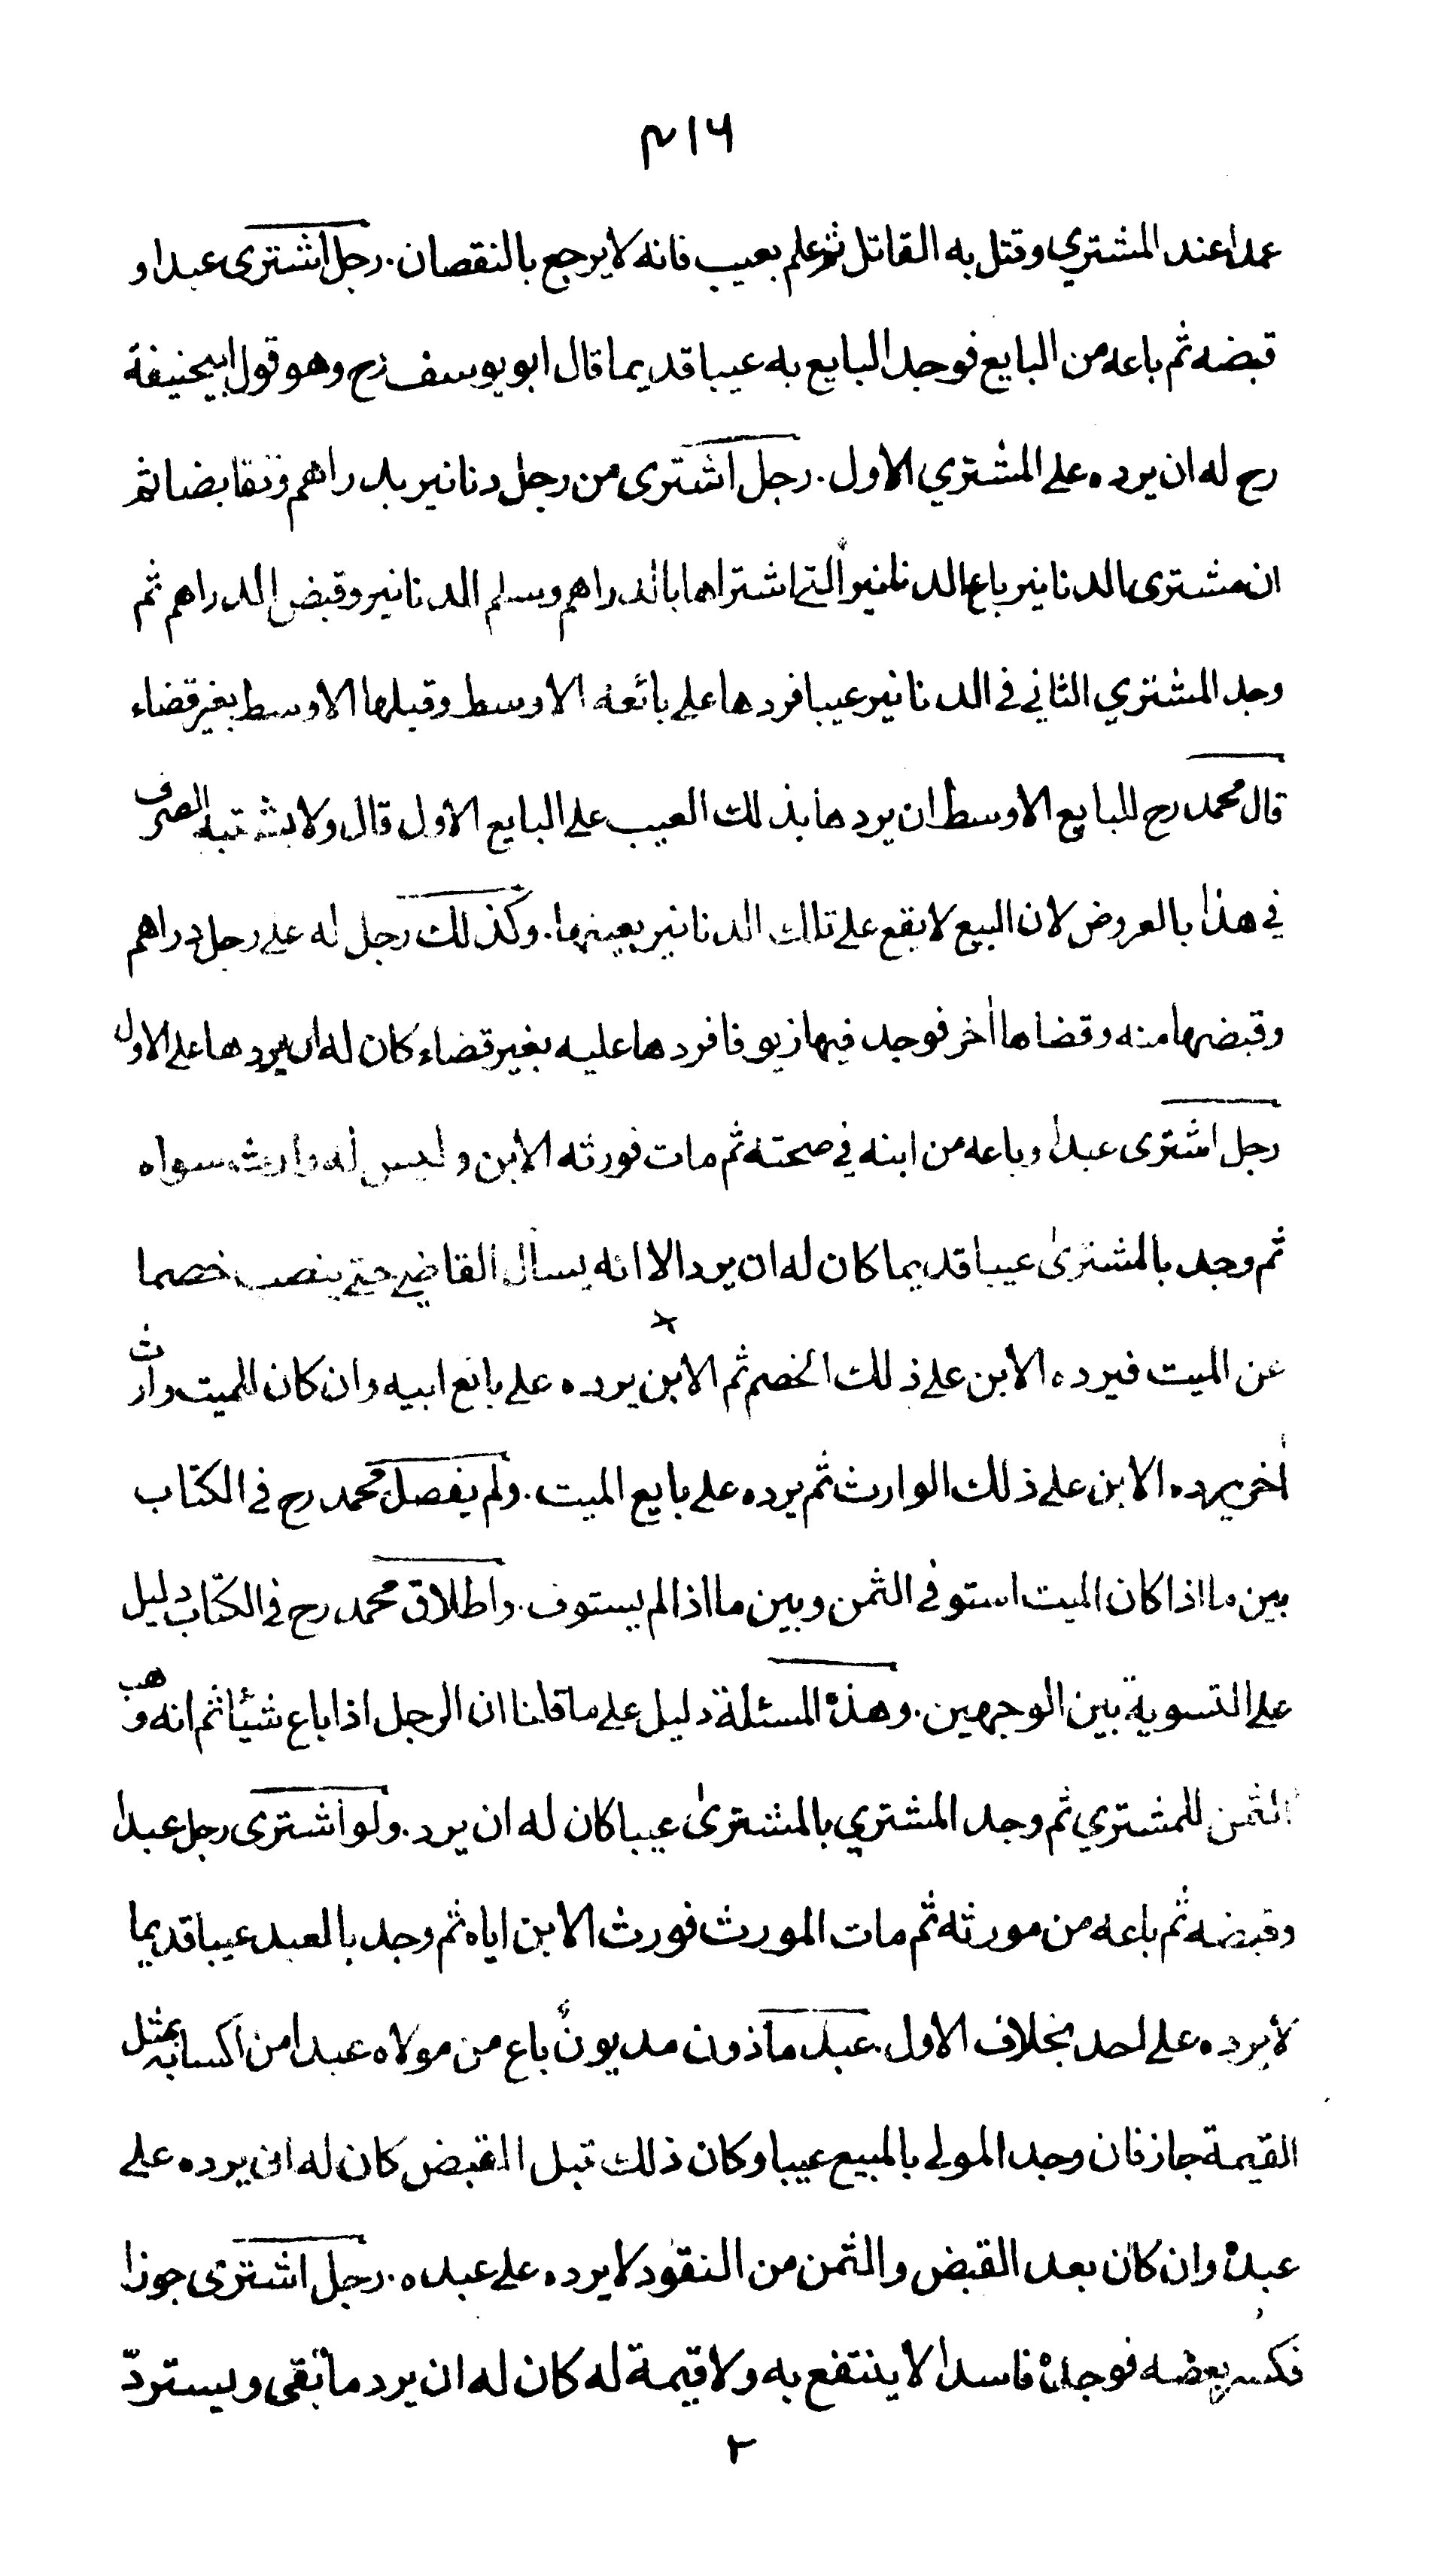 ٣١٦
عمدا عند المشتري وقتل به القاتل ثم علم بعيب فانه لا يرجع بالنقصان . رجل اشترى عبدا و
قبضه ثم باعه من البايع فوجد البايع به عيبا قديما قال ابو يوسف رح وهو قول ابيحنيفة
رح له ان يرده على المشتري الاول . رجل اشترى من رجل دنانير بدراهم وتقابضا ثم
ان مشترى الدنانير باع الدنانير التي اشتراها بالدراهم وسلم الدنانير وقبض الدراهم ثم
وجد المشتري الثاني في الدنانير عيبا فردها على بائعه الاوسط وقبلها الاوسط بغير قضاء
قال محمد رح للبايع الاوسط ان يردها بذلك العيب على البايع الاول قال ولا يشتبه الصرف
في هذا بالعروض لان البيع لا يقع على تلك الدنانير بعينها . وكذلك رجل له على رجل دراهم
وقبضها منه وقضاها اخر فوجد فيها زيوفا فردها عليه بغير قضاء كان له ان يردها على الاول
رجل اشترى عبدا وباعه من ابنه في صحته ثم مات فورثه الابن وليس له وارث سواه
ثم وجد بالمشترىٰ عيبا قديما كان له ان يرد الا انه يسأل القاضي حتى ينصب خصما
عن الميت فيرده الابن على ذلك الخصم ثم الابن يرده على بائع ابيه وان كان للميت وارث
اخر يرده الابن على ذلك الوارث ثم يرده على بايع الميت . ولم يفصل محمد رح في الكتاب
بين ما اذا كان الميت استوفى الثمن وبين ما اذا لم يستوف . واطلاق محمد رح في الكتاب دليل
على التسوية بين الوجهين . وهذه المسئلة دليل على ما قلنا ان الرجل اذا باع شيئا ثم انه وهب
الثمن للمشتري ثم وجد المشتري بالمشترىٰ عيبا كان له ان يرد . ولو اشترى رجل عبدا
وقبضه ثم باعه من مورثه ثم مات المورث فورث الابن اياه ثم وجد بالعبد عيبا قديما
لا يرده على احد بخلاف الاول . عبد ماذون مديونٌ باع من مولاه عبدا من اكسابه بمثل
القيمة جاز فان وجد المولى بالمبيع عيبا وكان ذلك قبل القبض كان له ان يرده على
عبده وان كان بعد القبض والثمن من النقود لا يرده على عبده . رجل اشترى جوزا
فكسر بعضه فوجده فاسدا لا ينتفع به ولا قيمة له كان له ان يرد ما بقي ويستردّ
٢